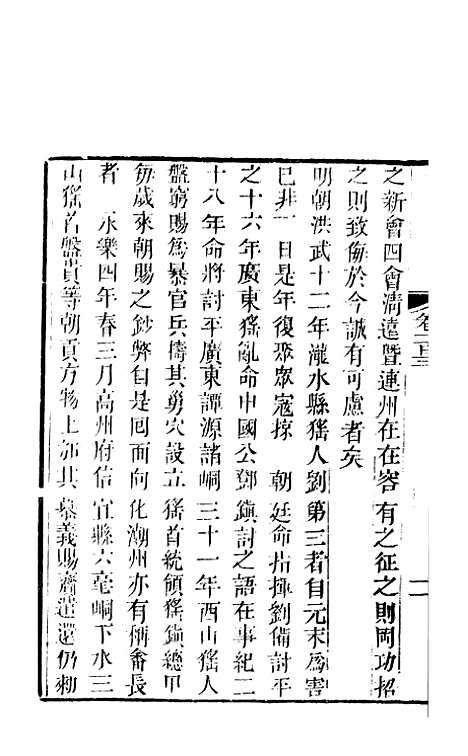 之新會四會清遠曁連州在在容有之征之則罔功招
之則致侮於今誠有可慮者矣
明朝洪武十二年瀧水縣猺人劉第三者自元末爲害
已非一日是年復聚眾寇掠 朝廷命指揮劉備討平
之十六年廣東猺亂命申國公鄧鎮討之語在事紀二
十八年命將討平廣東譚源諸峒三十一年西山猺人
盤窮賜爲暴官兵擣其巢穴設立猺首統領猺鎮總甲
每歲來朝賜之鈔幣自是回面向化潮州亦有㑌畨長
者 永樂四年春三月高州府信宜縣六毫峒下水三
山猺首盤貴等朝貢方物上嘉其慕義賜賚遣還仍勅
卷一百三